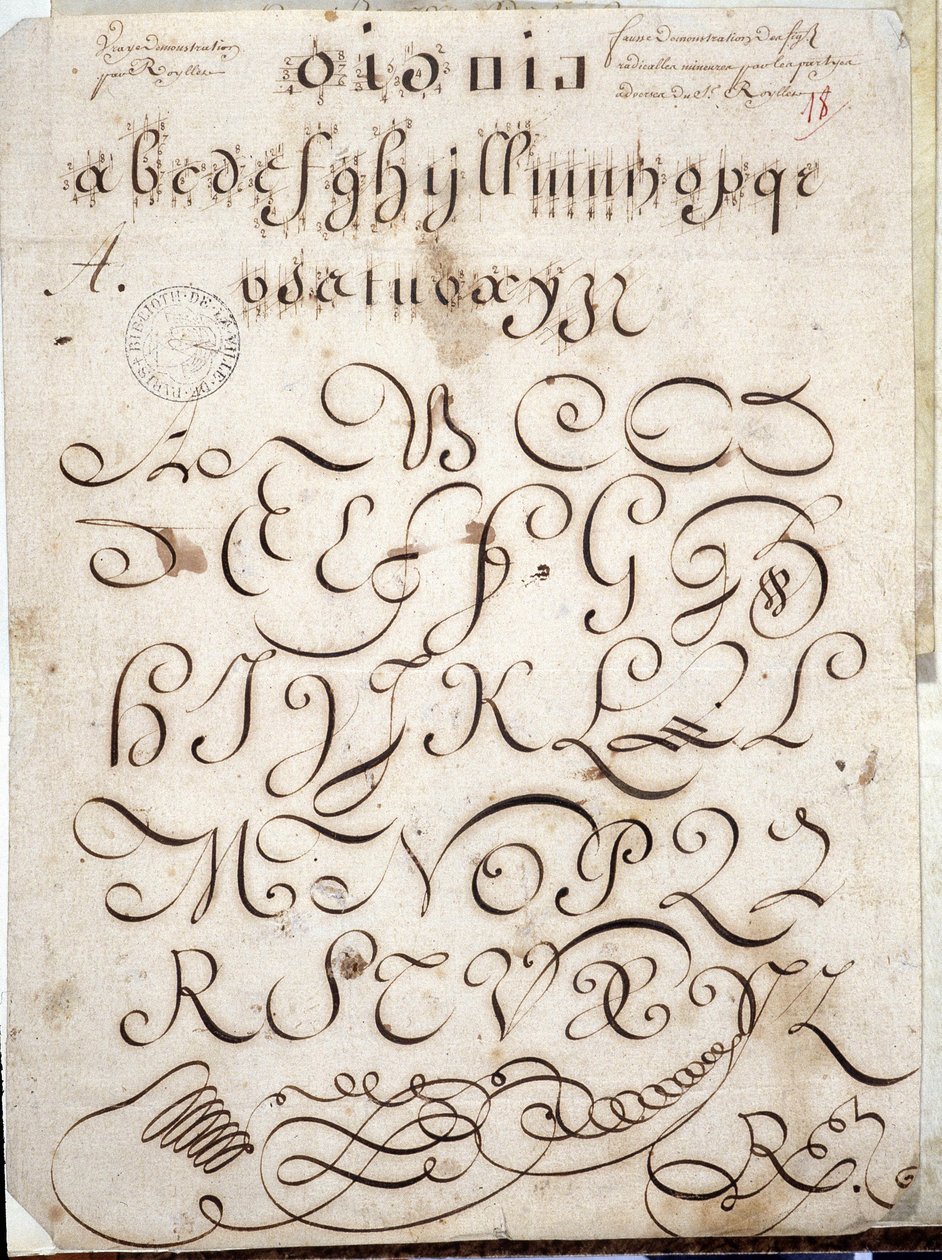 Vraye Demonstration
par Royllet
o i ɔ o i ɔ
fausse Demonstration Des fig.
radicalles mineures par les partyes
adverses Du Sr. Royllet
18
a b c d e f g h y j l l m n o p q r
v s a t u v x y z
A.
BIBLIOTH. DE LA VILLE DE PARIS
A B C D
D E E F G G
H I Y K L L
M N O P Q Q
R S T V X Y Z
R